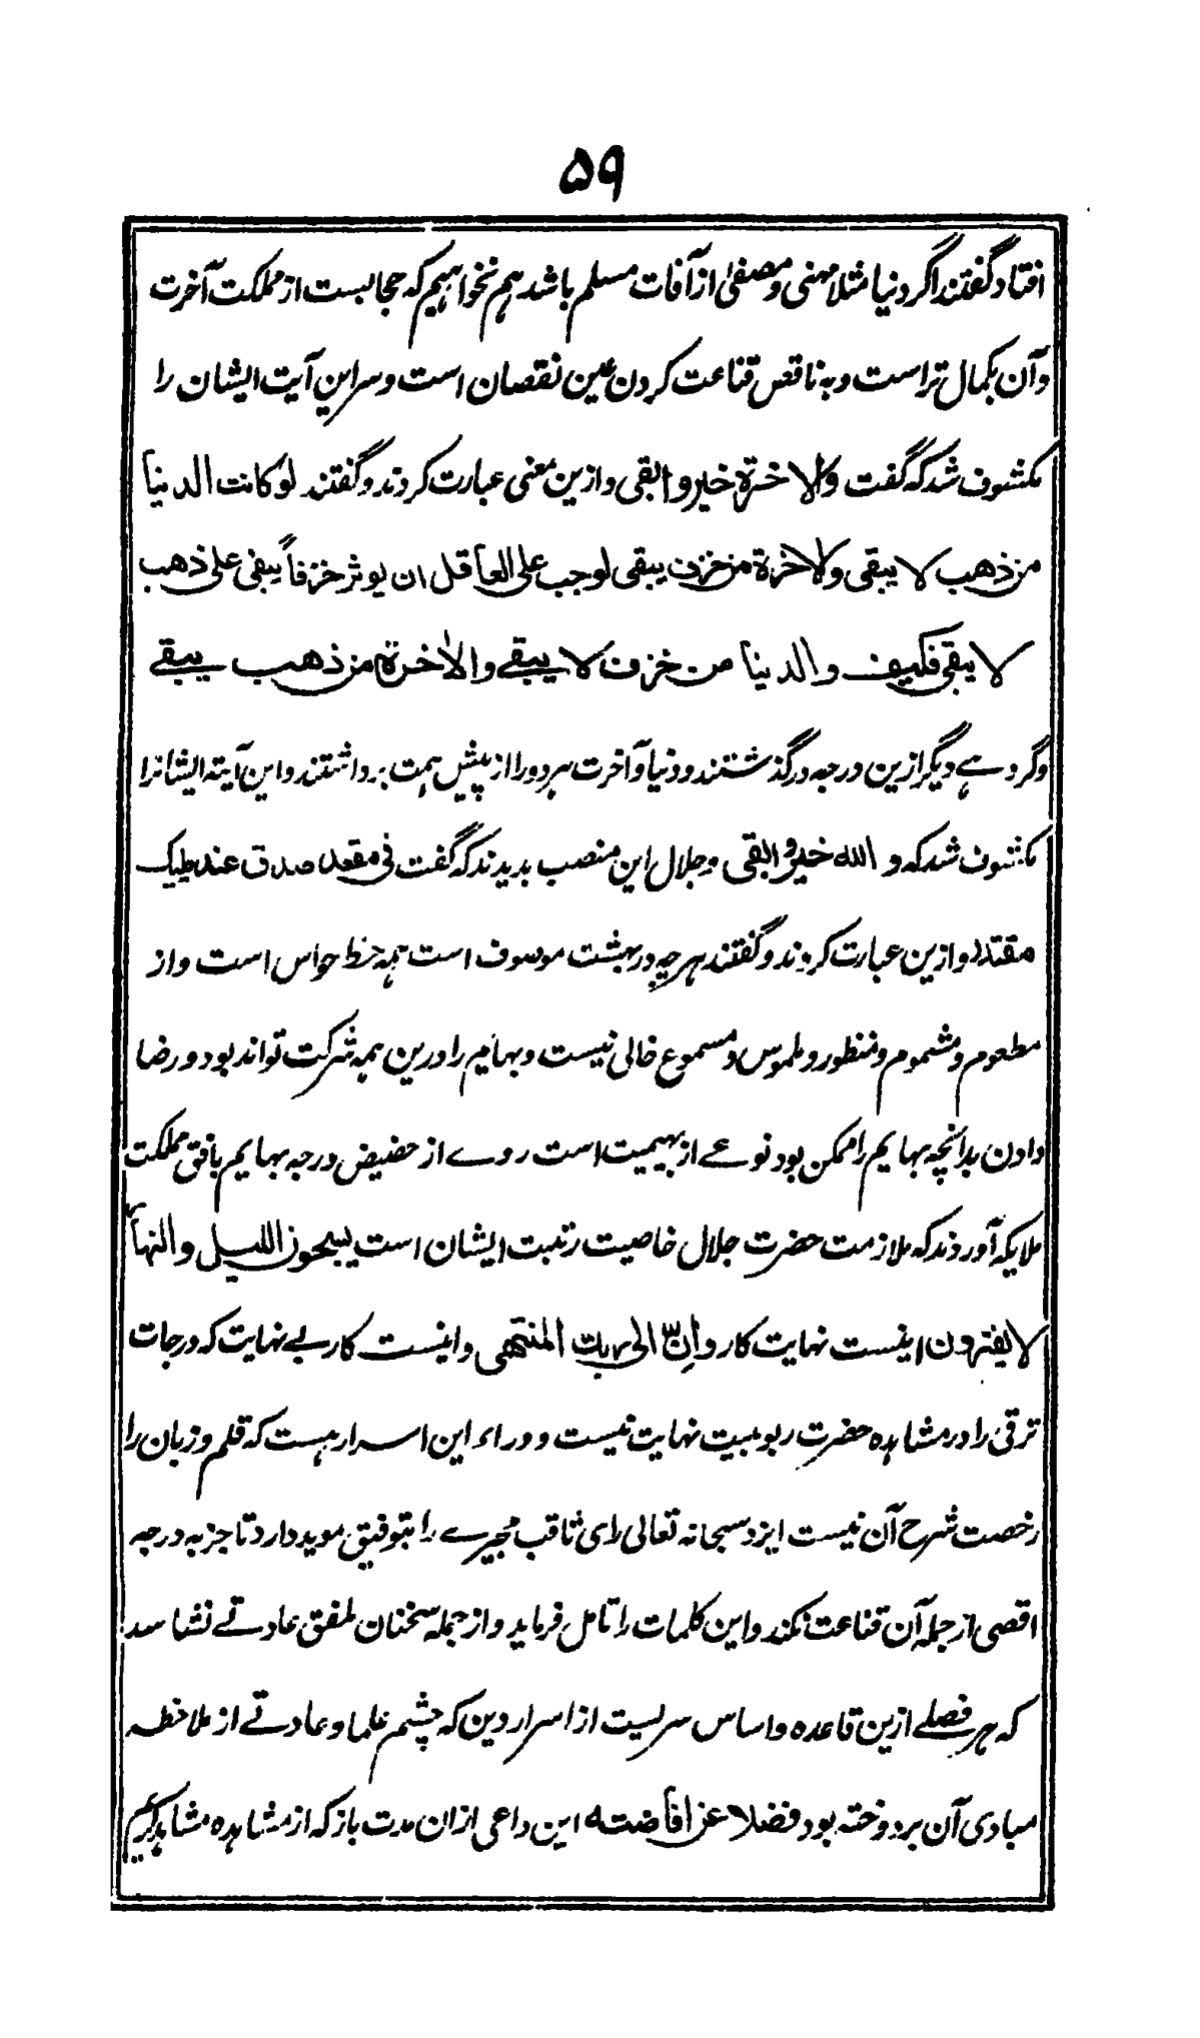 ۵۹
افتاد گفتند اگر دنیا مثلا مهنی و مصفیٰ از آفات مسلم باشد هم نخواهیم که حجابست از مملکت آخرت
وآن بکمال تر است و به ناقص قناعت کردن عین نقصان است و سر این آیت ایشان را
مکشوف شد که گفت والاخرة خیر و ابقی و ازین معنی عبارت کردند و گفتند لو کانت الدنیا
من ذهب لا یبقی والاخرة من خزف یبقی لوجب علی العاقل ان یوثر خزفاً یبقی علی ذهب
لا یبقی فکیف والدنیا من خزف لا یبقے والاٰخرة من ذهب یبقے
وگروهے دیگر ازین درجه درگذشتند و دنیا و آخرت هر دو را از پیش همت برداشتند و این آیته ایشانرا
مکشوف شد که و الله خیر و ابقی و جلال این منصب بدیدند که گفت فی مقعد صدق عند ملیک
مقتدر و ازین عبارت کردند و گفتند هر چه در بهشت موصوف است همه حظ حواس است و از
مطعوم و مشموم و منظور و ملموس و مسموع خالی نیست و بهایم را درین همه شرکت تواند بود و رضا
دادن بدانچه بهایم را ممکن بود نوعے از بهیمیت است روے از حضیض درجه بهایم بافق مملکت
ملایکه آوردند که ملازمت حضرت جلال خاصیت رتبت ایشان است یسبحون اللیل والنهار
لا یفترون اینست نهایت کار و اِنَّ الی ربک المنتهی و اینست کار بے نهایت که درجات
ترقی را در مشاهده حضرت ربوبیت نهایت نیست و وراء این اسرار هست که قلم و زبان را
رخصت شرح آن نیست ایزد سبحانه تعالی رای ثاقب مجیرے را بتوفیق موید دارد تا جز به درجه
اقصی از جمله آن قناعت نکند و این کلمات را تامل فرماید و از جمله سخنان ملفق عادتے نشناسد
که هر فصلے ازین قاعده و اساس سریست از اسرار دین که چشم علما و عادتے از ملاحظه
مبادی آن بردوخته بود فضلا عن افاضته این داعی ازان مدت باز که از مشاهده مشاهد کریم